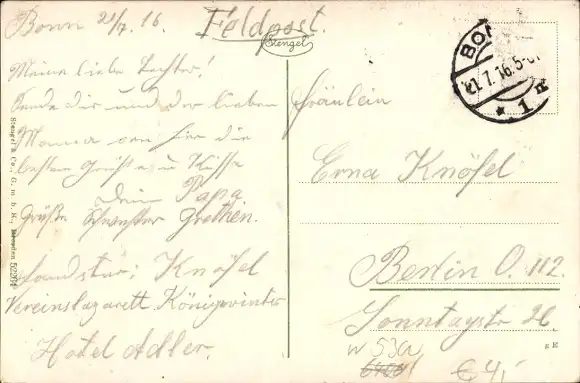 Bonn 21/7. 16.
Feldpost.
Stengel
Meine liebe Tochter!
Sende dir und der lieben
Mamma von hier die
besten Grüße u Küsse
Dein Papa.
Grüße Schwester Grethen.
Landstr: Knöfel
Vereinslazarett Königswinter
Hotel Adler.
Stengel & Co., G. m. b. H., 52294
BON
21.7.16.5-6
* 1
Fräulein
Erna Knöfel
Berlin O. 112.
Sonntagstr 26.
W 53a
€ 4,-